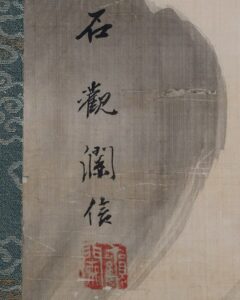 石觀瀾信